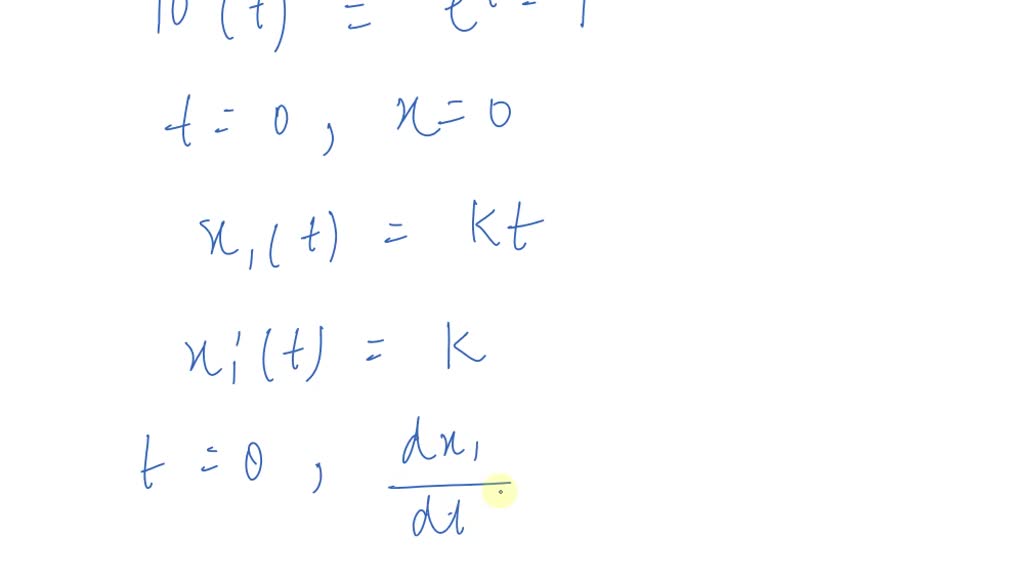 t = 0 , x = 0
x₁(t) = kt
x₁'(t) = k
t = 0 , dx₁/dt